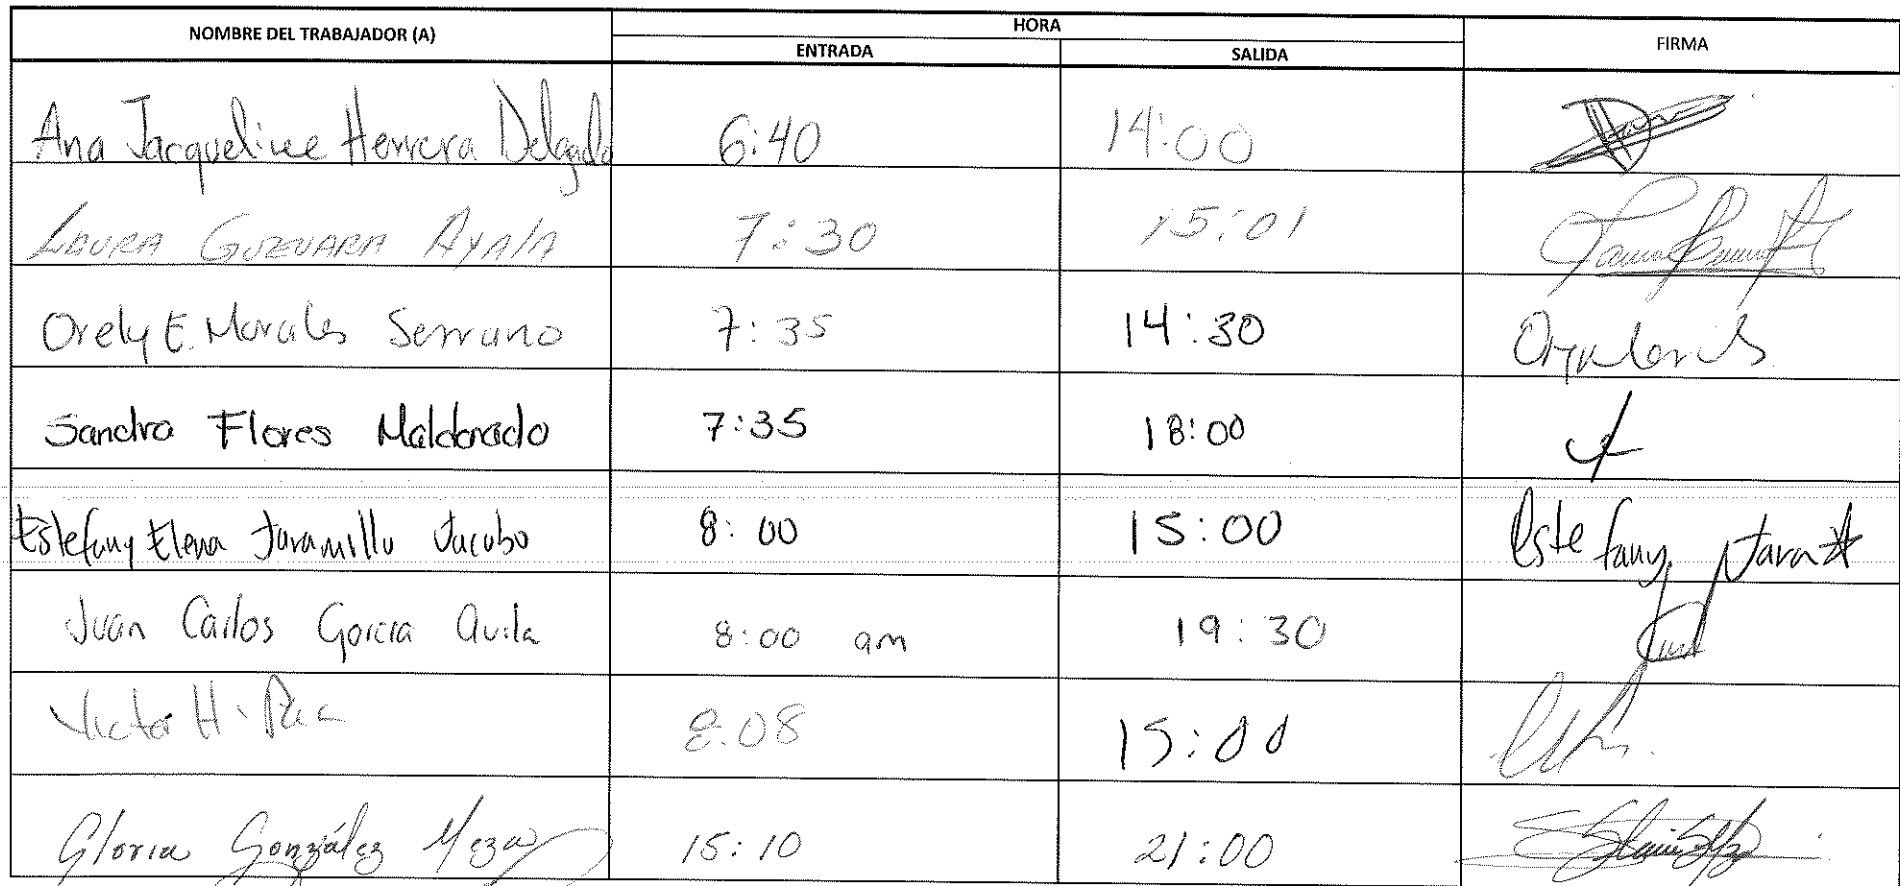 NOMBRE DEL TRABAJADOR (A) HORA FIRMA
ENTRADA SALIDA
Ana Jacqueline Herrera Delgado 6:40 14:00
LAURA GUEVARA AyAlA 7:30 15:01
Orely E. Morales Serrano 7:35 14:30
Sandra Flores Maldonado 7:35 18:00
Estefany Elena Jaramillo Jacobo 8:00 15:00 Estefany Jara
Juan Carlos Garcia Avila 8:00 am 19:30
Victor H. 8:08 15:00
Gloria González Meza 15:10 21:00